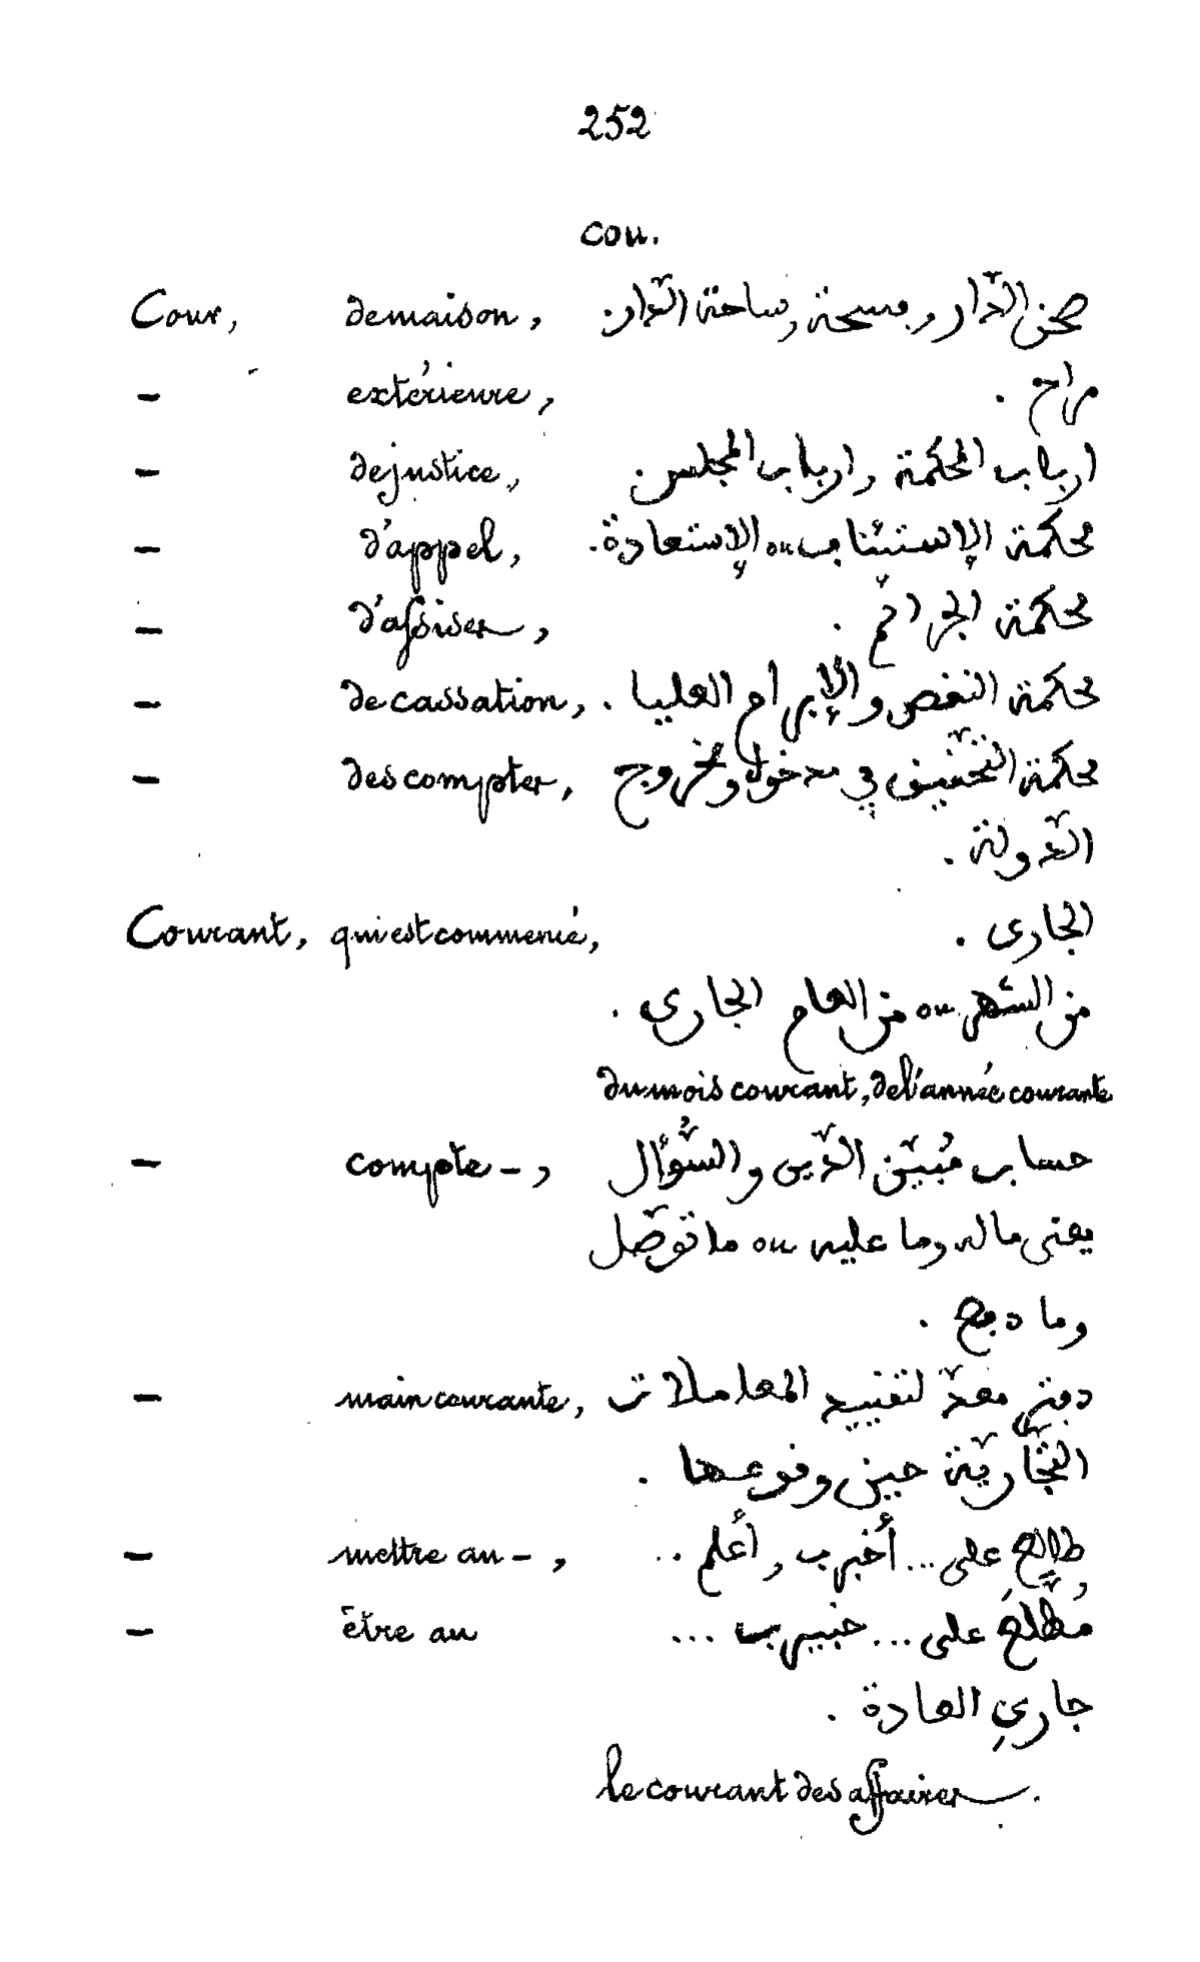 252
cou.
Cour, de maison, صحن الدّار وفسحة وساحة الدّار.
- extérieure, مراح.
- de justice, ارباب المحكمة وارباب المجلس.
- d'appel, محكمة الإستئناف ou الإستعادة.
- d'assises, محكمة الجرائم.
- de cassation, محكمة النقض والإبرام العليا.
- des comptes, محكمة التّحقيق في مدخول ومخروج
الدّولة.
Courant, qui est commencé, الجارى.
من الشهر ou من العام الجارى.
du mois courant, de l'année courante
- compte -, حساب مُبيّن الدّين والسُّؤال
يعنى ماله وما عليه ou ما توصّل
وما دفع.
- main courante, دفتر معدّ لتقييد المعاملات
التّجّاريّة حين وقوعها.
- mettre au -, طالِع على... أُخبر ب وأُعلم ..
- être au مُطَّلِع على... خبير ب ...
جاري العادة.
le courant des affaires.